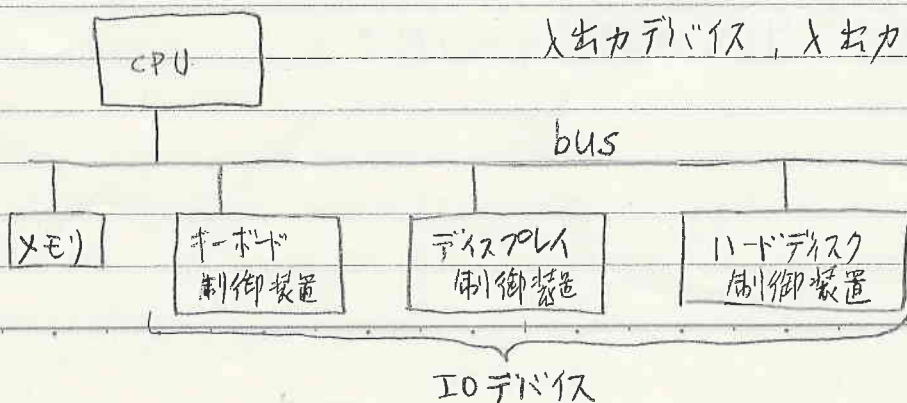 入出力デバイス, 入出力
CPU
bus
メモリ
キーボード
制御装置
ディスプレイ
制御装置
ハードディスク
制御装置
IOデバイス